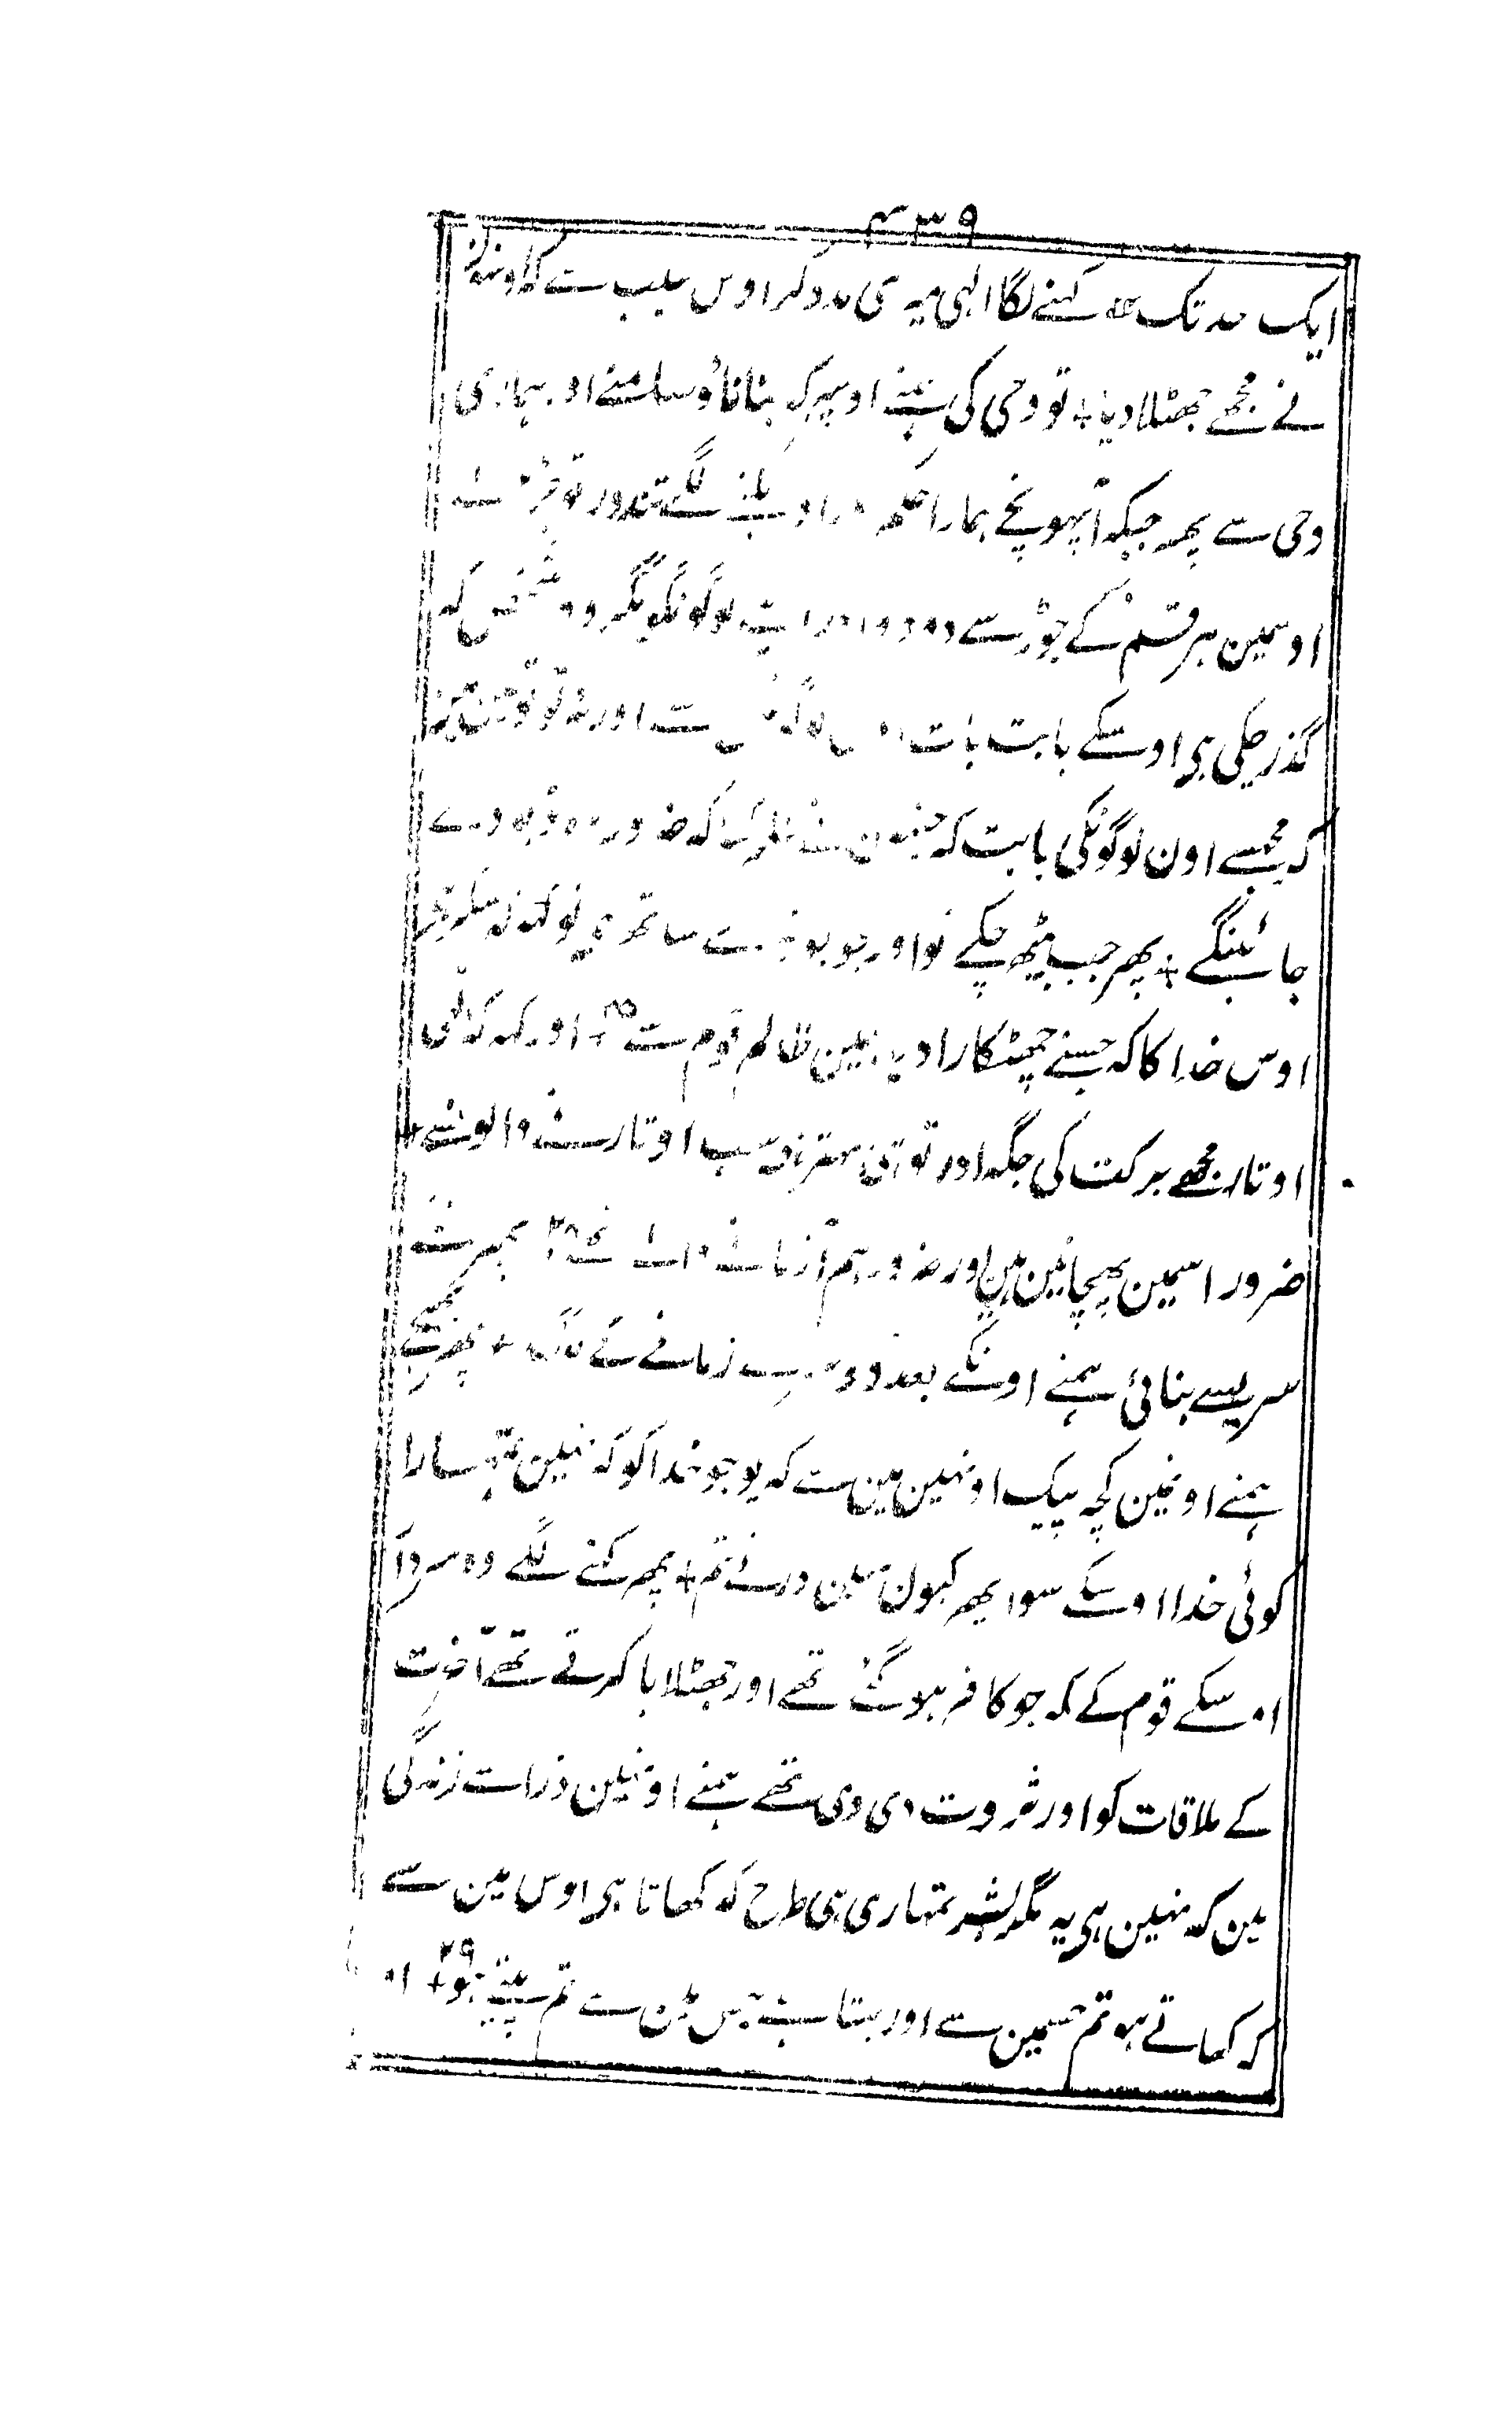 ۴۳۹
ایک مدتک کہنے لگا الہی میری مدد کر اوس سبب سے کہ اونہوں
نے مجھے جھٹلا دیا + تو وحی کی ہمنے اوسپر کہ بنا ناؤ سامنے اور ہماری
وحی سے پھر جبکہ آپہونچے ہمارا حکم اور اوبلنے لگے تندور تو
اوسمین ہر قسم کے جوڑ سے دو دو اور اپنے لوگونکو مگر وہ شخص کہ
گذر چکی ہی اوسکے بابت بات اور نہ تو
کہ مجھسے اون لوگونکی بابت کہ جنہون نے ظلم کئے کہ ضرور وہ ڈبو دے
جائینگے + پھر جب بیٹھ چکے تو اور جو ہو تیرے ساتھ ہی تو کہنا شکر ہی
اوس خدا کا کہ جسنے چھٹکارا دیا ہمین ظالم قوم سے + اور کہہ کہ الہی
اوتار مجھے برکت کی جگہ اور تو ہی بہتر ہی سب اوتارنے والونسے +
ضرور اسمین پہچانین ہین اور ضرور ہم آزمانے والے تھے ۲۸ پھر نئے
سریسے بنائی ہمنے اونکے بعد دوسرے زمانے کے لوگ + پھر بھیجے
ہمنے اونمین کچھ پیک اونہین مین سے کہ پوجو خدا کو کہ نہین تمہارا
کوئی خدا اوسکے سوا پھر کیون نہین ڈرتے تم + پھر کہنے لگے وہ سردار
اوسکے قوم کے کہ جو کافر ہوگئے تھے اور جھٹلایا کرتے تھے آخرت
کے ملاقات کو اور ثروت دی وی تھے ہمنے اونہین ذراسے زندگی
مین کہ نہین ہی یہ مگر بشر تمہاری ہی طرح کہ کھاتا ہی اوس مین سے
کہ کھاتے ہو تم جسمین سے اور پیتا ہے جس مین سے تم پیتے ہو + ۲۹ اور